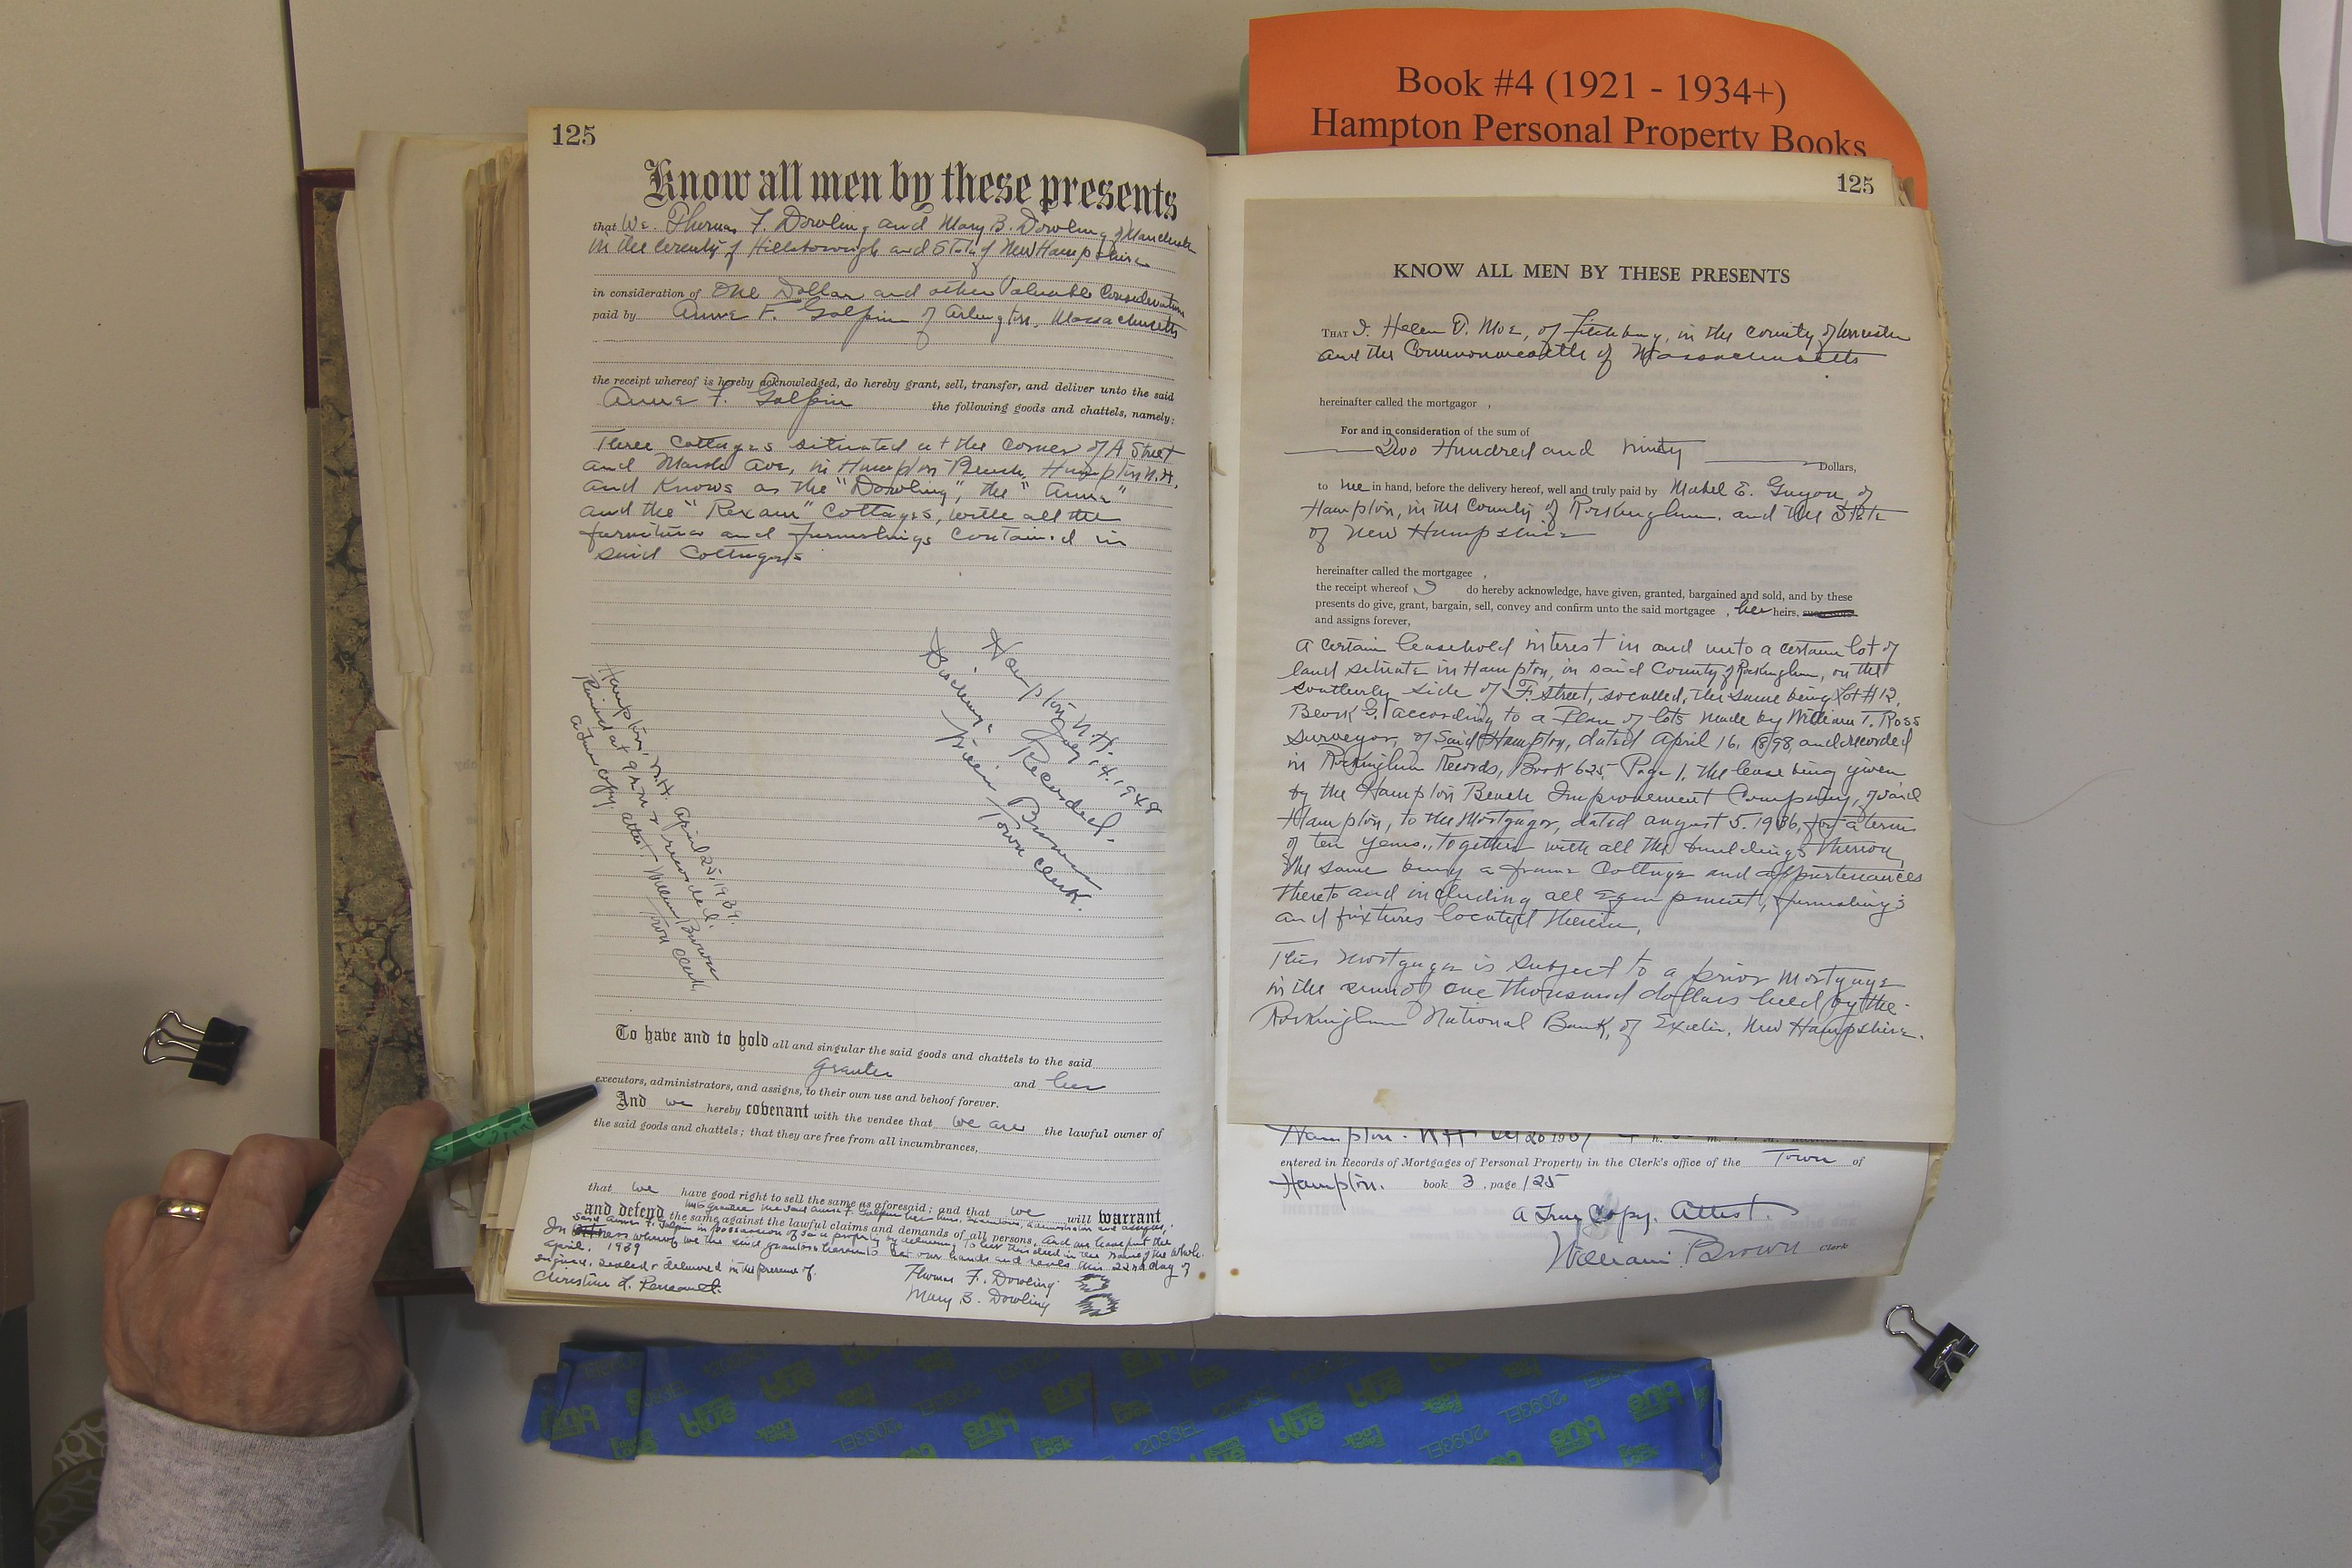 Book #4 (1921 - 1934+)
Hampton Personal Property Books
125
Know all men by these presents
that We. Thomas F. Dowling and Mary B. Dowling of Manchester
in the County of Hillsborough and State of New Hampshire
in consideration of One Dollar and other Valuable Consideration
paid by Anne F. Galpin of Arlington, Massachusetts
the receipt whereof is hereby acknowledged, do hereby grant, sell, transfer, and deliver unto the said
Anne F. Galpin the following goods and chattels, namely:
Three Cottages situated at the corner of A Street
and Marsh Ave, in Hampton Beach, Hampton N.H.
and Known as the "Dowling", the "Anna"
and the "Rexam" Cottages, with all the
furniture and furnishings contained in
said Cottages
Hampton N.H.
14. 1948
Recorded.
Discharge
Brown
Town Clerk.
Hampton, N.H. April 25, 1939.
Received at 9 A.M. & recorded.
a true copy. attest. William Brown
Town Clerk
To have and to hold all and singular the said goods and chattels to the said
Grantee and her
executors, administrators, and assigns, to their own use and behoof forever.
And we hereby covenant with the vendee that we are the lawful owner of
the said goods and chattels; that they are free from all incumbrances,
that we have good right to sell the same as aforesaid; and that we will warrant
and defend the same against the lawful claims and demands of all persons. And we have put the
said Anne F. Galpin in possession of said property by delivering to her this deed in the name of the whole.
In witness whereof we the said grantors hereunto set our hands and seals this 22nd day of
April, 1939
Signed, sealed & delivered in the presence of.
Christine L.
Thomas F. Dowling
Mary B. Dowling
125
KNOW ALL MEN BY THESE PRESENTS
THAT I. Helen T. Moe, of Fitchburg, in the county of Worcester
and the Commonwealth of Massachusetts
hereinafter called the mortgagor ,
For and in consideration of the sum of
Two Hundred and ninety Dollars,
to me in hand, before the delivery hereof, well and truly paid by Mabel E. Guyon, of
Hampton, in the County of Rockingham. and the State
of New Hampshire
hereinafter called the mortgagee ,
the receipt whereof I do hereby acknowledge, have given, granted, bargained and sold, and by these
presents do give, grant, bargain, sell, convey and confirm unto the said mortgagee , her heirs,
and assigns forever,
A certain leasehold interest in and unto a certain lot of
land situate in Hampton, in said County of Rockingham, on the
southerly side of F. street, so called, the same being Lot #12,
G. according to a Plan of lots made by William T. Ross
surveyor, of said Hampton, dated April 16, 1898, and recorded
in Rockingham Records, Book 625, Page 1, the lease being given
by the Hampton Beach Improvement Company, of said
Hampton, to the Mortgagor, dated august 5. 1936, for a term
of ten years, together with all the buildings thereon,
the same being a frame Cottage and appurtenances
thereto and including all equipment, furnishings
and fixtures located therein.
This mortgage is subject to a prior mortgage
in the sum of one thousand dollars held by the
Rockingham National Bank, of Exeter, New Hampshire.
Hampton. NH
entered in Records of Mortgages of Personal Property in the Clerk's office of the Town of
Hampton. book 3 , page 125
A True Copy. Attest.
William Brown Clerk